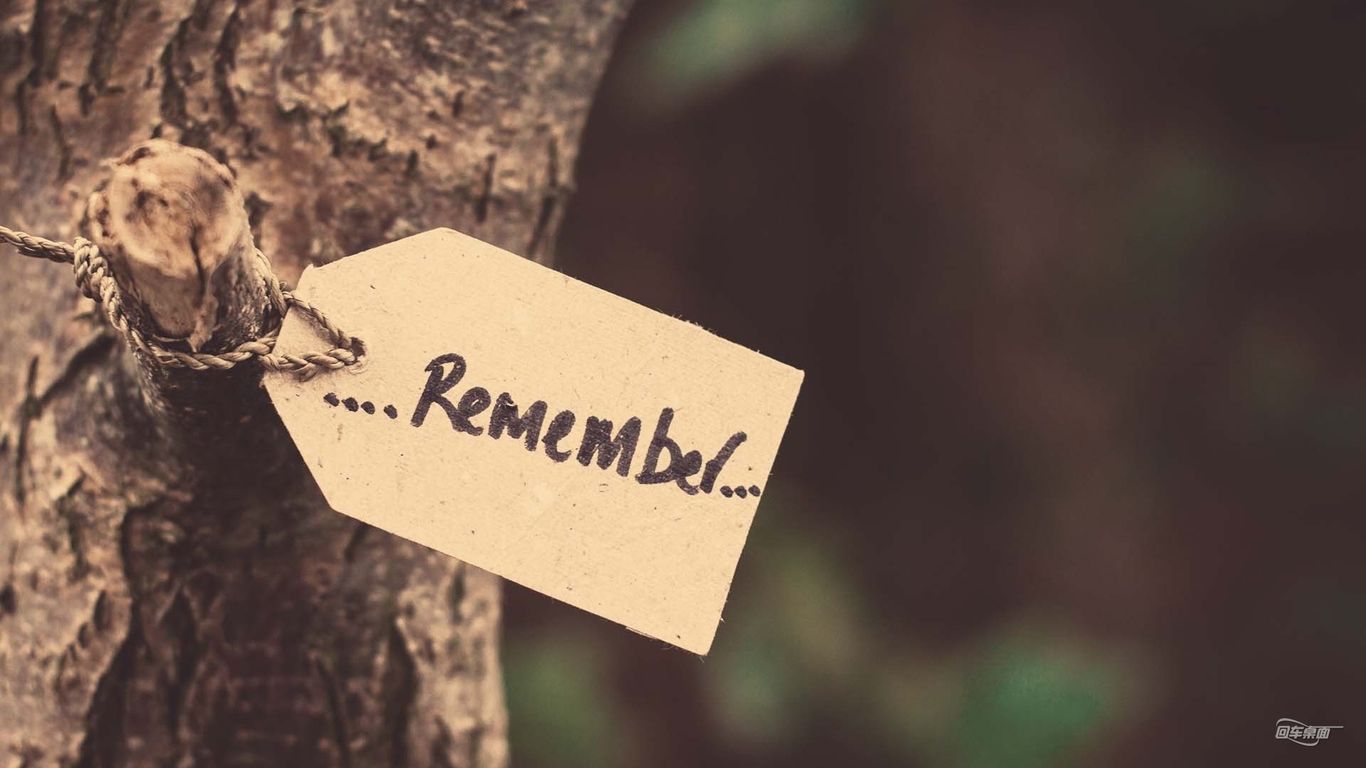 ....Remember...
回车桌面